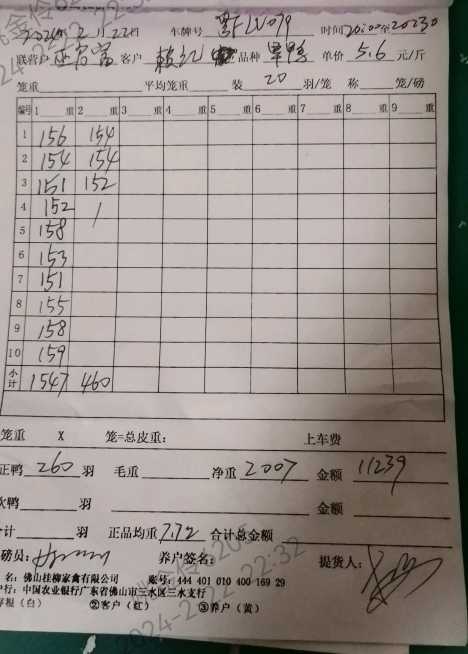 2024年2月22日 车牌号 粤 时间20:00至20230
联营户 客户 品种 单价 5.6 元/斤
笼重 平均笼重 装 20 羽/笼 称 笼/磅
编号 1 重 2 重 3 重 4 重 5 重 6 重 7 重 8 重 9 重
1 156 154
2 154 154
3 151 152
4 152 /
5 158
6 153
7 151
8 155
9 158
10 159
小计 1547 460
笼重 X 笼=总皮重: 上车费
正鸭 260 羽 毛重 净重 2007 金额 11239
次鸭 羽 金额
合计 羽 正品均重 7.72 合计总金额
磅员: 养户签名: 提货人:
名: 佛山桂柳家禽有限公司 账号: 444 401 010 400 169 29
行: 中国农业银行广东省佛山市三水区三水支行
存根(白) ②客户(红) ③养户(黄)
2024-2-22 22:32